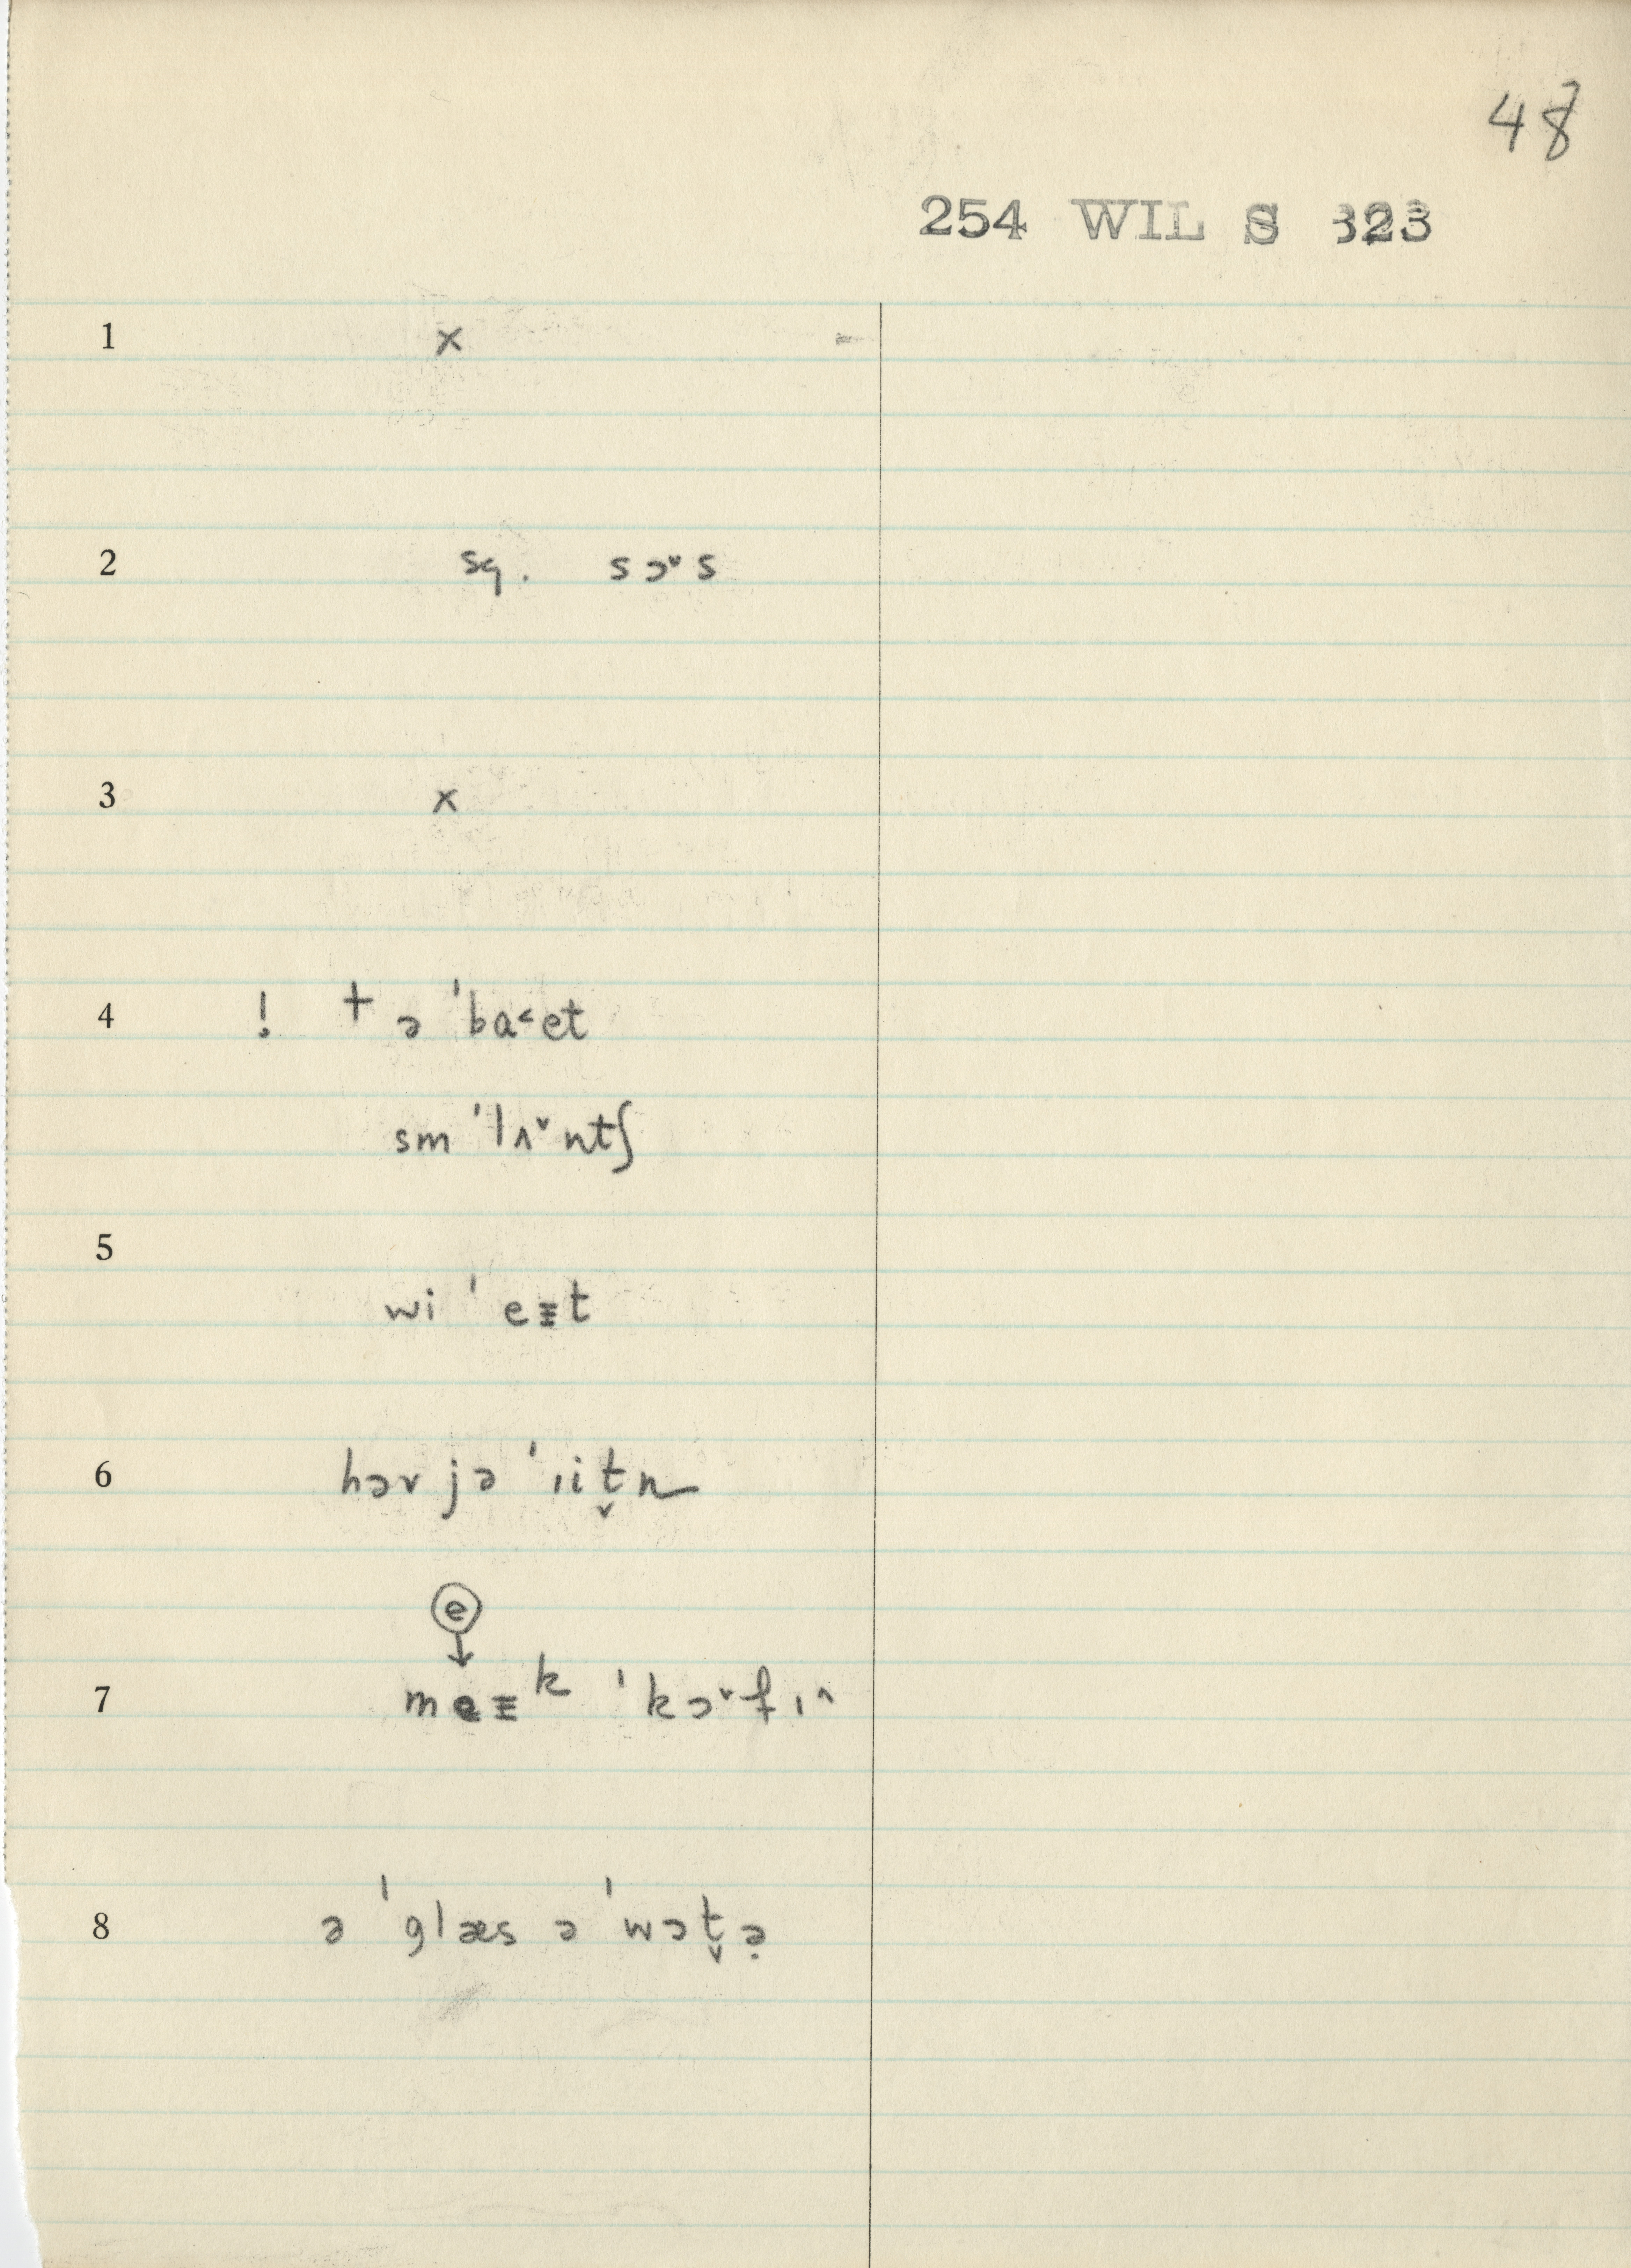 48
254 WIL S 323
1 x
2 sq. sɔ˅s
3 x
4 ! + ə ˈba˂et
sm ˈlʌ˅ntʃ
5
wi ˈ eɪt
6 həv jə ˈɪit̬n
ⓔ
↓
7 meɪᵏ ˈkɔ˅fɪ˄
8 ə ˈglæs ə ˈwɔt̬ə̣